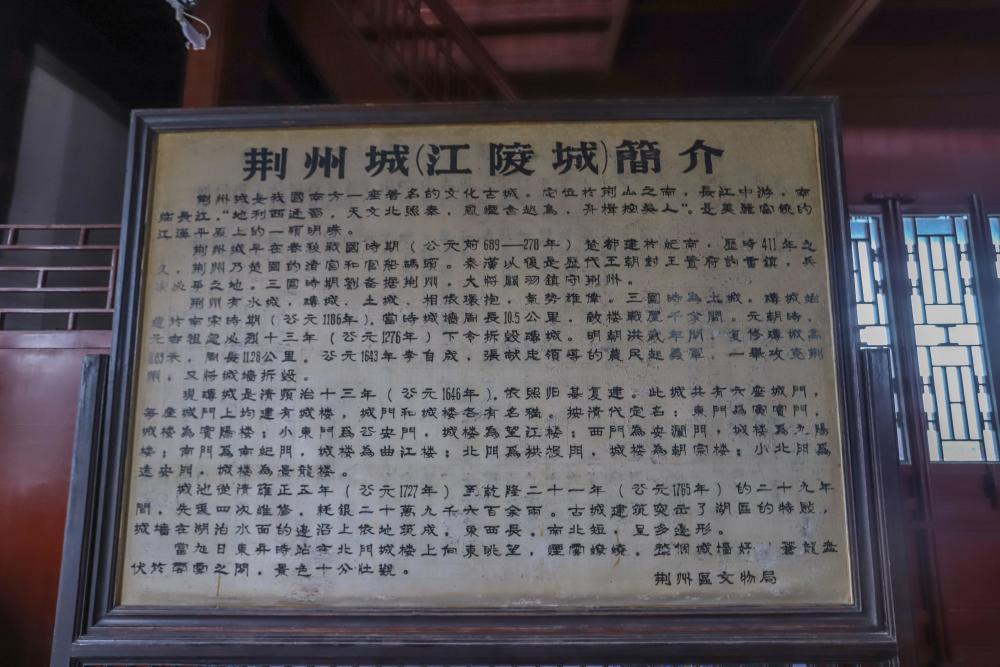 荆州城(江陵城)簡介
荆州城是我國南方一座著名的文化古城。定位於荆山之南,長江中游,南
临長江,"地利西通蜀,天文北照秦,風煙含越鳥,舟楫控吳人"。是美麗富饒的
江漢平原上的一顆明珠。
荆州城早在春秋戰國時期(公元前689——278年)楚都建於紀南,歷時411年之
久,荆州乃楚國的渚宮和官船碼頭。秦漢以後是歷代王朝封王置府的重鎮,兵
必爭之地,三國時期劉备據荆州,大將關羽鎮守荆州。
荆州有水城,磚城,土城,相依環抱,氣势雄偉。三國時為土城。磚城始
建於南宋時期(公元1186年),當時城墙周長10.5公里,敵楼戰屋千余間。元朝時,
元世祖忽必烈十三年(公元1276年)下令拆毁磚城。明朝洪武年間,復修磚城高
8.83米,周長11.28公里。公元1643年李自成,張献忠領導的農民起義軍,一舉攻克荆
州,又將城墙拆毁。
現磚城是清順治十三年(公元1646年),依照旧基复建。此城共有六座城門,
每座城門上均建有城楼,城門和城楼各有名稱。按清代定名:東門為寅賓門,
城楼為賓陽楼;小東門為公安門,城楼為望江楼;西門為安瀾門,城楼為九陽
楼;南門為南紀門,城楼為曲江楼;北門為拱極門,城楼為朝宗楼;小北門為
远安門,城楼為景龍楼。
城池從清雍正五年(公元1727年)至乾隆二十一年(公元1765年)的二十九年
間,先後四次維修,耗银二十萬九千六百余兩。古城建筑突出了湖區的特點,
城墙在湖泊水面的邊沿上依地筑成,東西長,南北短,呈多邊形。
當旭日東昇時站在北門城楼上向東眺望,煙雲缭繞,整個城墙好 蒼龍盘
伏於雲雾之間,景色十分壮觀。
荆州區文物局